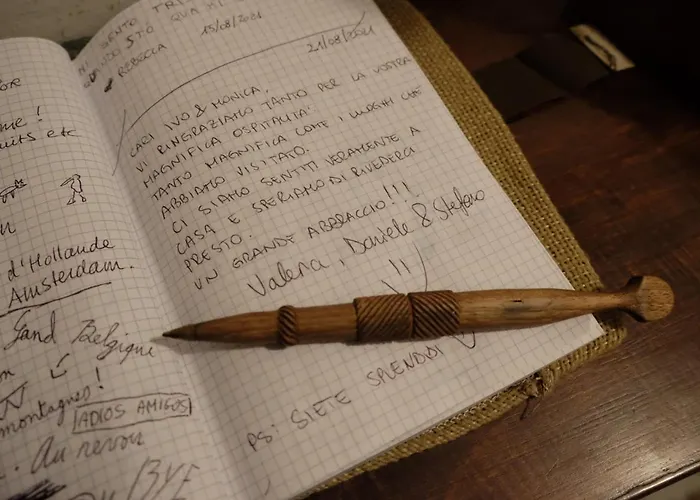 me!
uits etc
d'Hollande
Amsterdam.
Gand Belgique
montagnes!
ADIOS AMIGOS
Au revoir
BYE
SENTO
STO QUA
REBECCA
15/08/2021
21/08/2021
CARI IVO & MONICA,
VI RINGRAZIAMO TANTO PER LA VOSTRA
MAGNIFICA OSPITALITA'.
TANTO MAGNIFICA COME I LUOGHI CHE
ABBIAMO VISITATO.
CI SIAMO SENTITI VERAMENTE A
CASA E SPERIAMO DI RIVEDERCI
PRESTO.
UN GRANDE ABBRACCIO!!!
Valeria, Daniele & Stefano
PS: SIETE SPLENDIDI